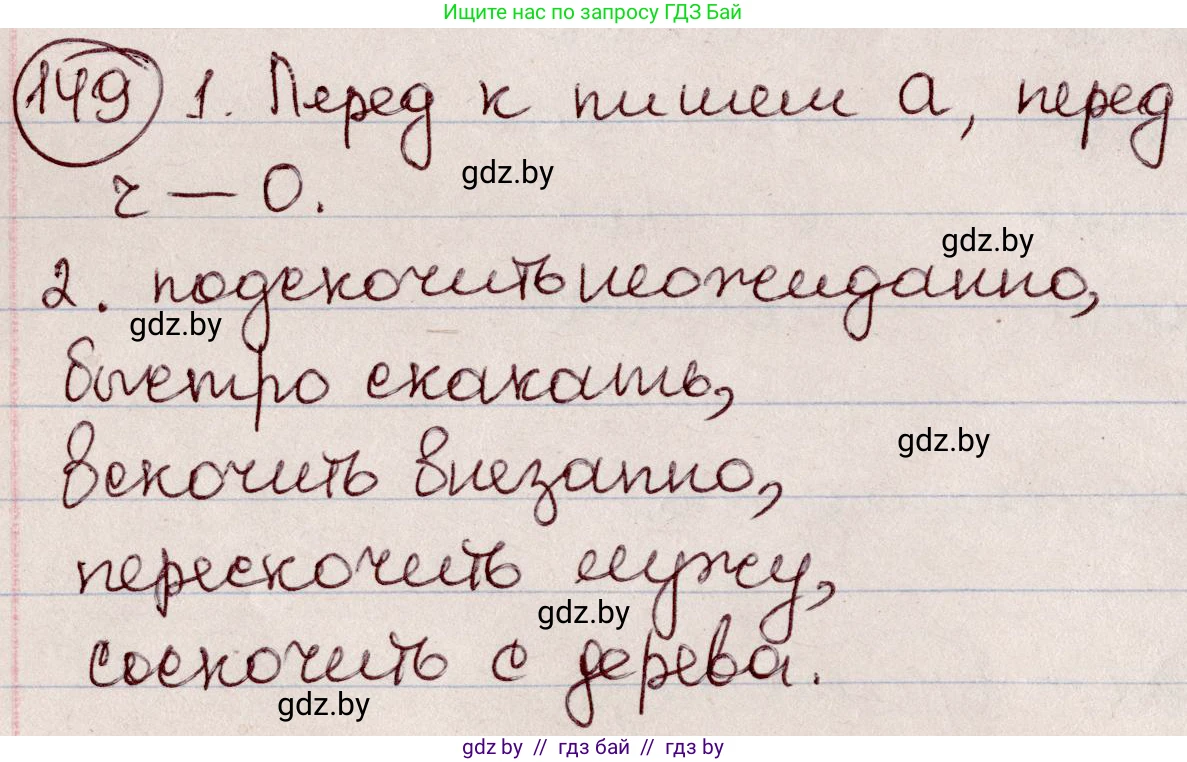 Ищите нас по запросу ГДЗ Бай
149 1. Перед к пишем а, перед
gdz.by
ч — о.
gdz.by
2. подскочить неожиданно,
gdz.by
быстро скакать,
gdz.by
вскочить внезапно,
перескочить лужу,
gdz.by
соскочить с дерева.
gdz.by
gdz by // гдз бай // гдз by